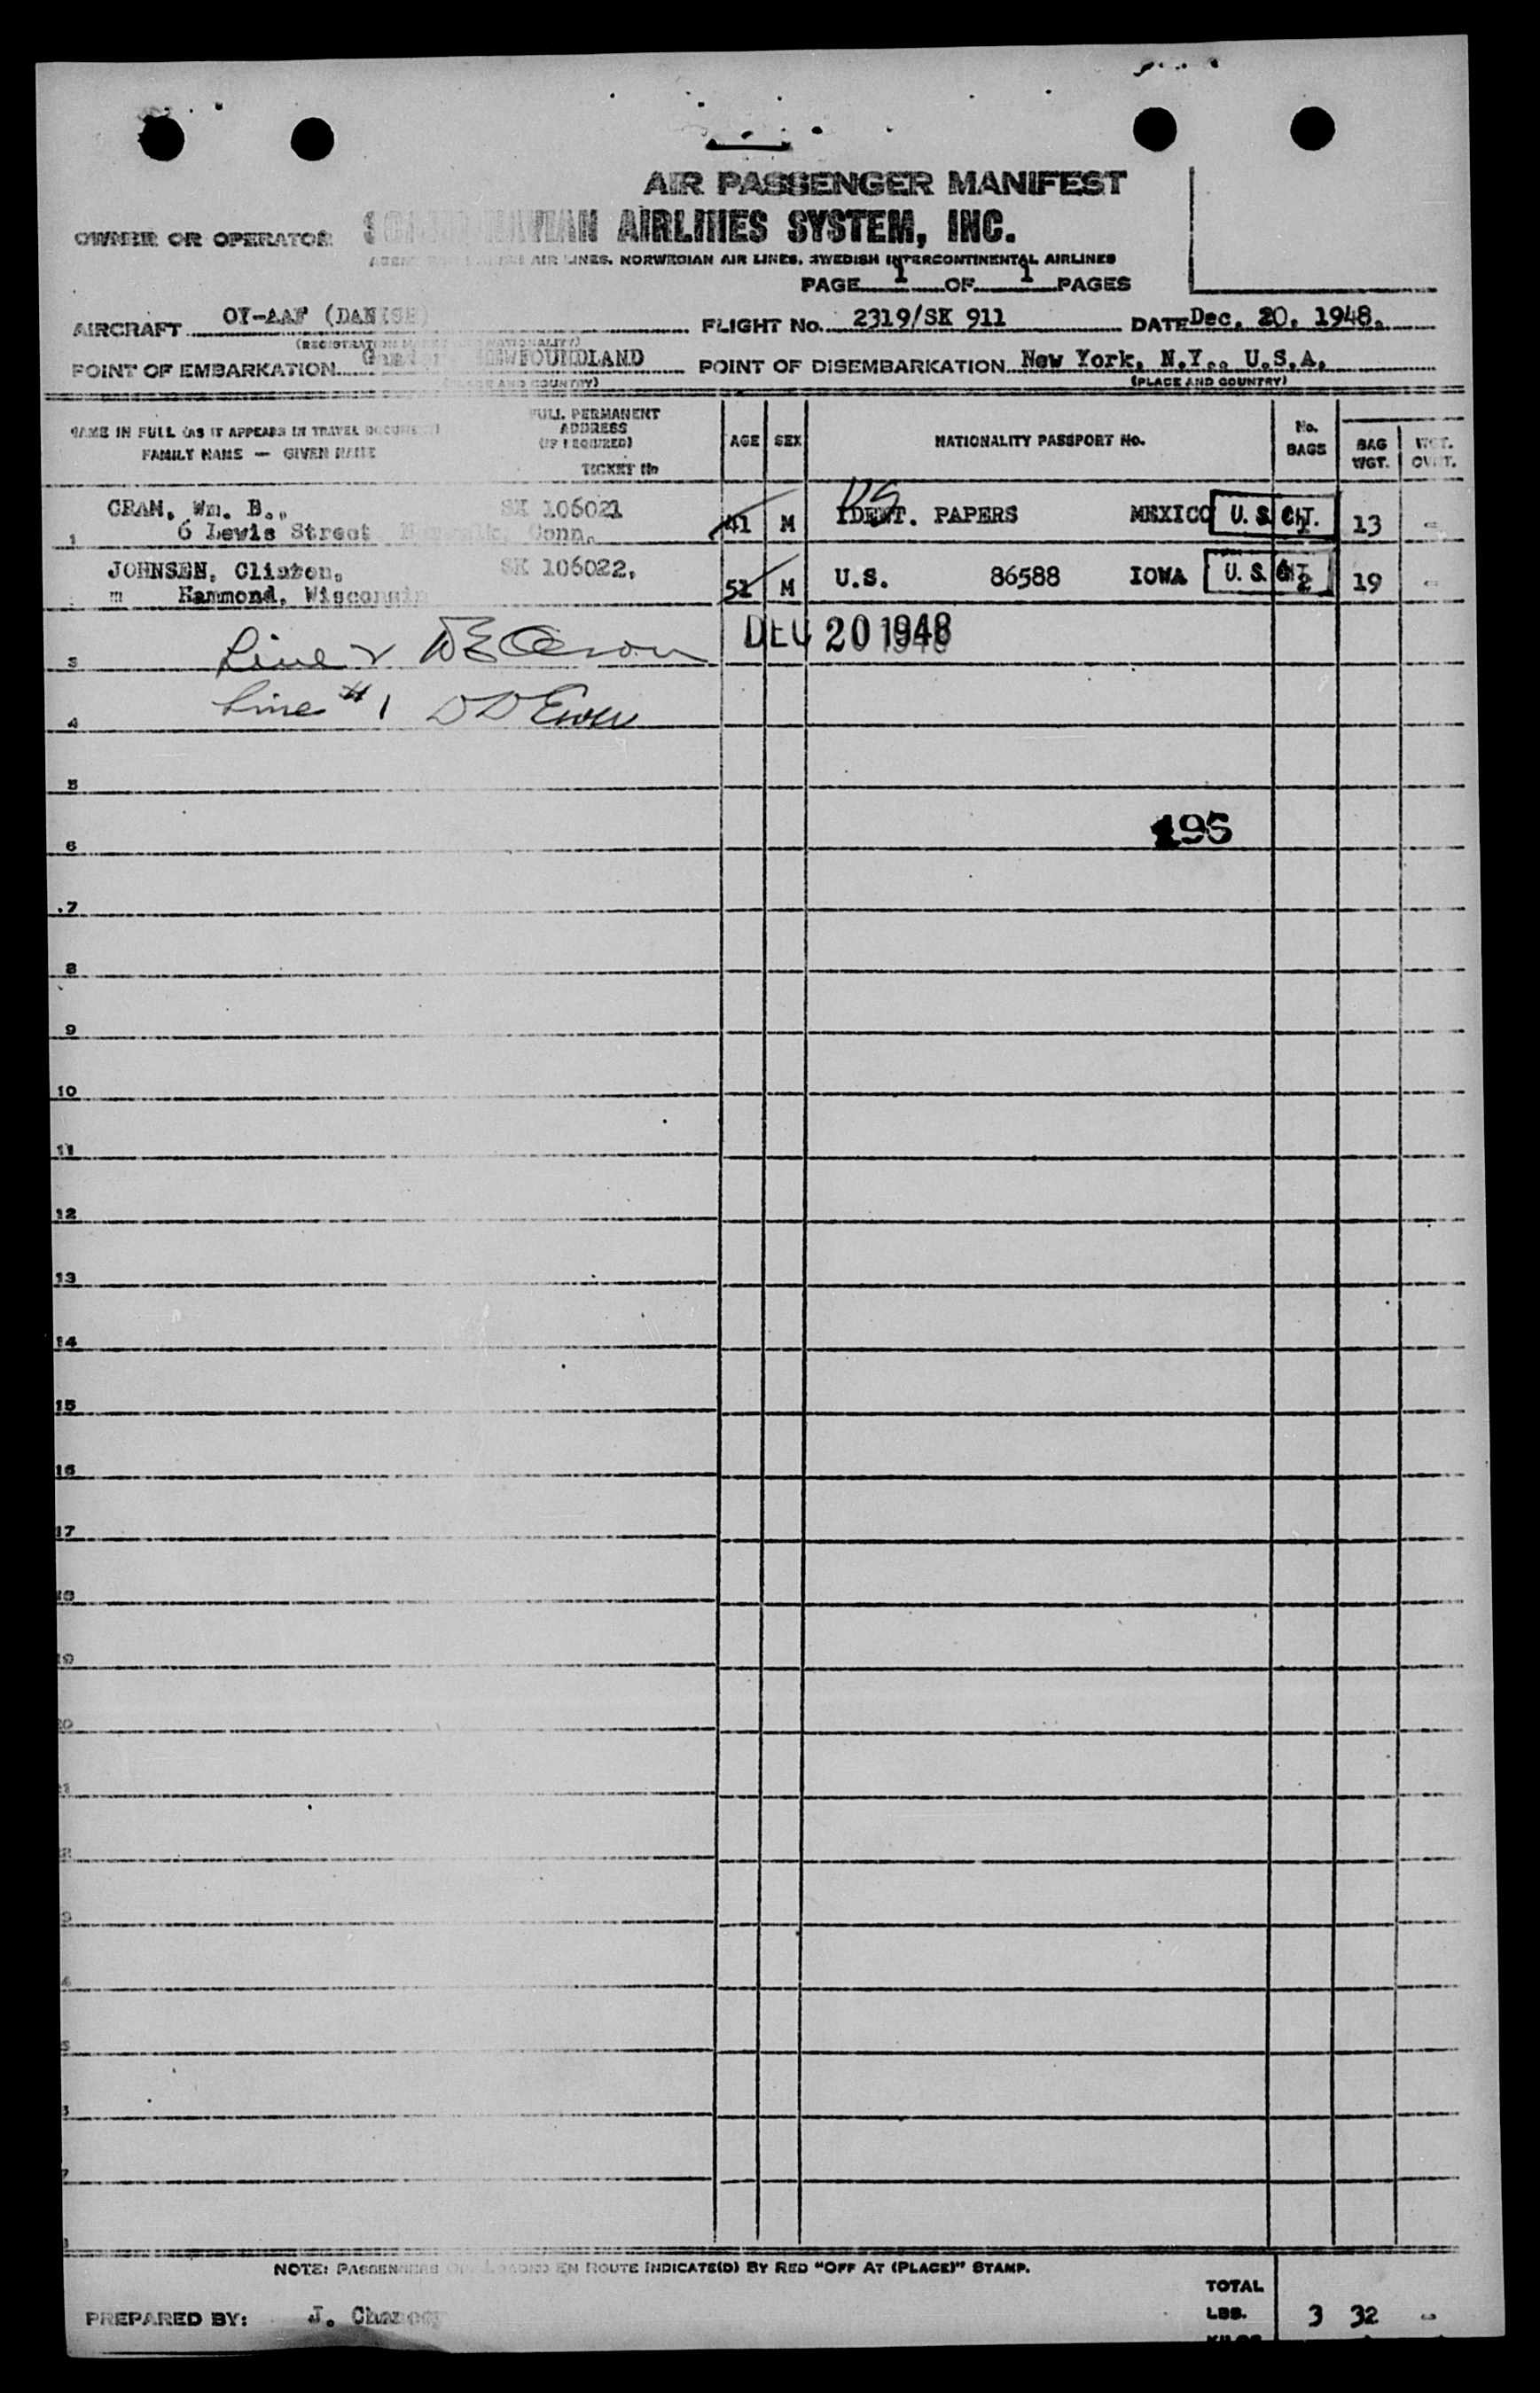 AIR PASSENGER MANIFEST
OWNER OR OPERATOR AIRLINES SYSTEM, INC.
AIR LINES, NORWEGIAN AIR LINES, SWEDISH INTERCONTINENTAL AIRLINES
PAGE 1 OF 1 PAGES
AIRCRAFT OY-AAF (DANISH) FLIGHT No. 2319/SK 911 DATE Dec. 20, 1948.
POINT OF EMBARKATION NEWFOUNDLAND POINT OF DISEMBARKATION New York, N.Y., U.S.A.
(PLACE AND COUNTRY) (PLACE AND COUNTRY)
NAME IN FULL (AS IT APPEARS IN TRAVEL DOCUMENT)
FAMILY NAME — GIVEN NAME
FULL PERMANENT
ADDRESS
(IF REQUIRED)
TICKET No
AGE SEX NATIONALITY PASSPORT No. No. BAGS BAG WGT. WGT. OVWT.
CRAM, Wm. B., SK 106021 41 M IDENT. PAPERS MEXICO U. S. CIT. 1 13 -
US
1 6 Lewis Street Conn.
JOHNSEN, Clinton, SK 106022, 51 M U.S. 86588 IOWA U. S. CIT. 2 19 -
Hammond, Wisconsin
DEC 20 1948
3 Line 2
4 Line #1
5
195
6
7
8
9
10
11
12
13
14
15
16
17
18
19
20
NOTE: PASSENGERS EN ROUTE INDICATE(D) BY RED "OFF AT (PLACE)" STAMP.
TOTAL
LBS. 3 32 -
PREPARED BY: J.
KILOS